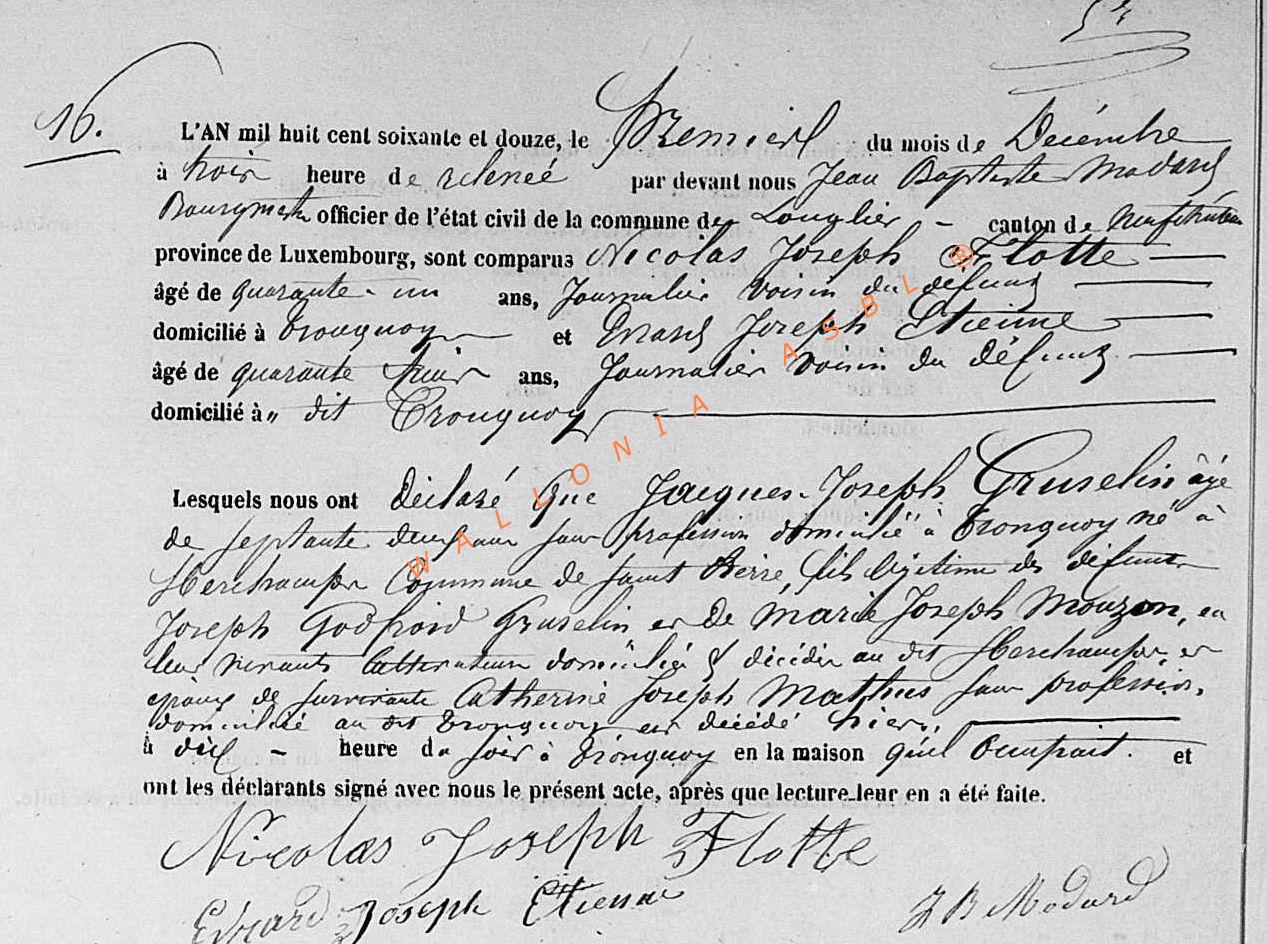 16.
L'AN mil huit cent soixante et douze, le Premier du mois de Décembre
à trois heure de relevée par devant nous Jean Baptiste Modard
Bourgmestre officier de l'état civil de la commune de Longlier canton de Neufchateau
province de Luxembourg, sont comparus Nicolas Joseph Flotte
âgé de quarante-un ans, Journalier voisin du défunt
domicilié à Tronquoy et Evrard Joseph Etienne
âgé de quarante huit ans, Journalier voisin du défunt
domicilié à " dit Tronquoy
Lesquels nous ont déclaré que Jacques-Joseph Gruselin âgé
de septante deux ans sans profession domicilié à Tronquoy né à
Herchamps Commune de Saint Pierre, fils légitime des défunts
Joseph Godfroid Gruselin et de Marie Joseph Mouzon, en
leur vivants cultivateurs domiciliés & décédés au dit Herchamps, et
époux de survivante Catherine Joseph Mathus sans profession,
domiciliée au dit Tronquoy est décédé hier,
à dix heure du soir à Tronquoy en la maison qu'il occupait. et
ont les déclarants signé avec nous le présent acte, après que lecture leur en a été faite.
Nicolas Joseph Flotte
Evrard Joseph Etienne J B Modard
WALLONIA ASBL ®